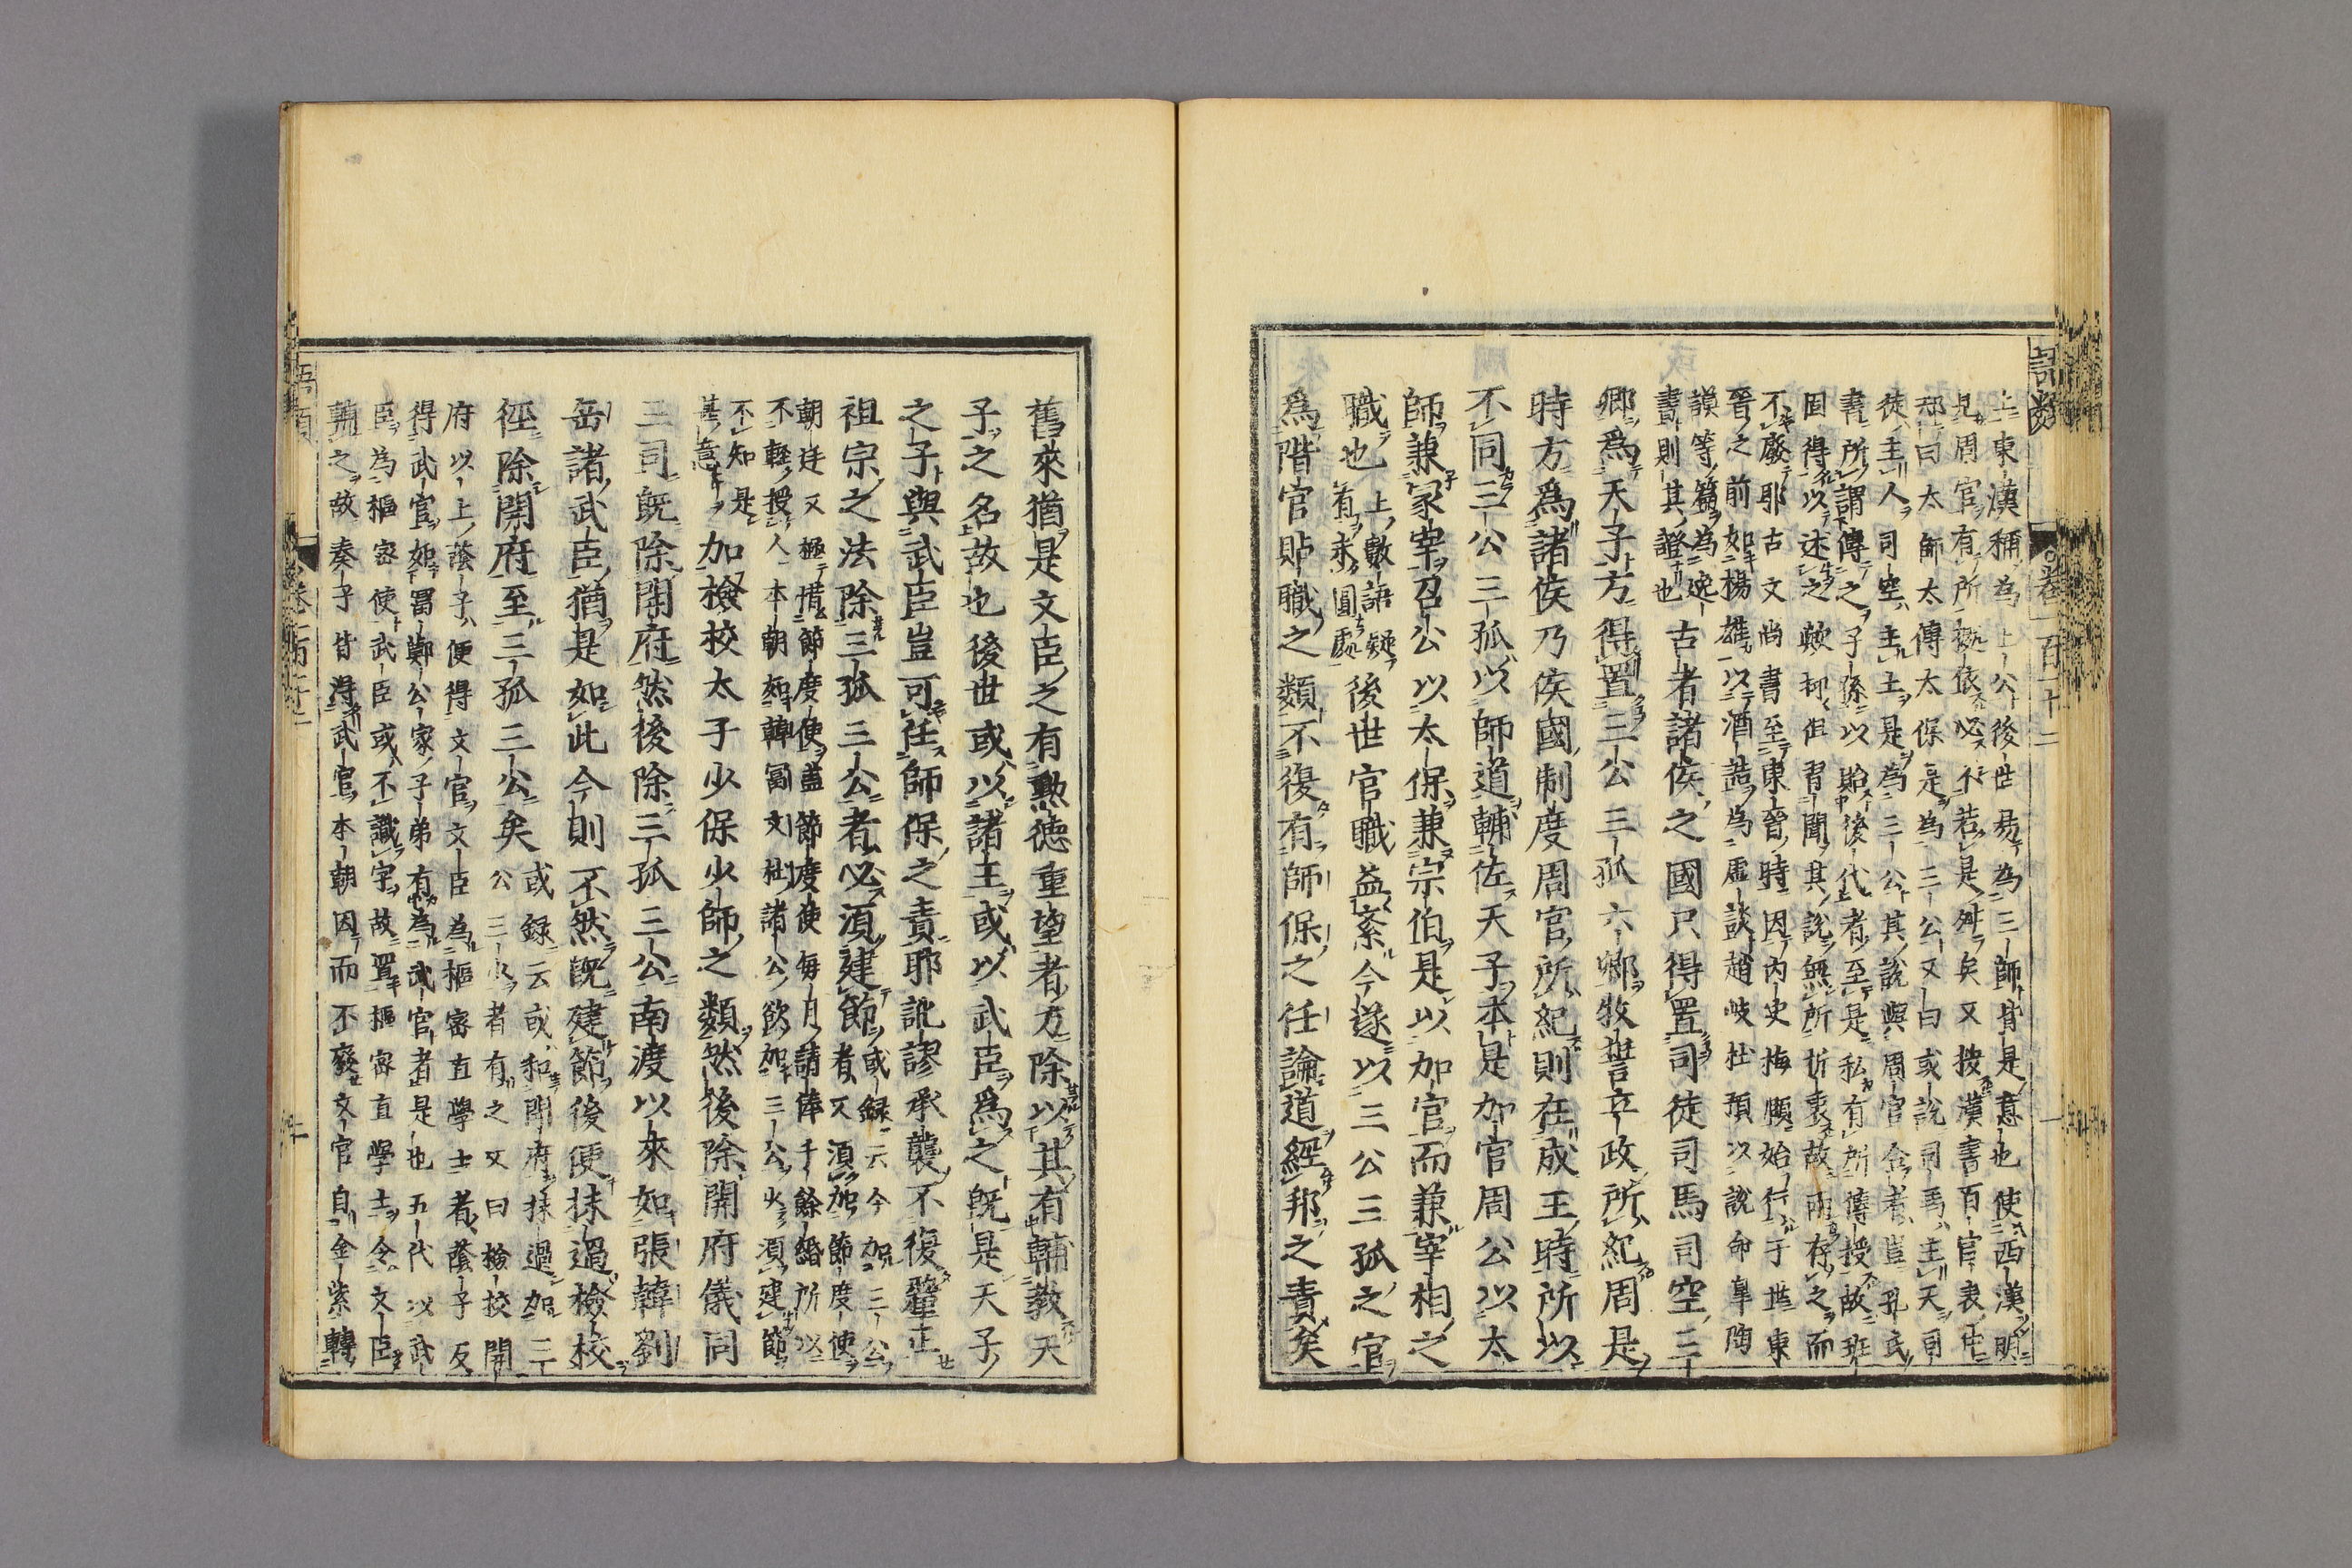 語類 卷一百一十二
上東漢稱為上公後世易為三師皆是意也使西漢明
見周官有所據依必不若是舛矣又按漢書百官表中
却曰太師太傅太保是為三公又曰或說司馬主天司
徒主人司空主土是為三公其說與周官合者豈孔氏
書所謂傳之子孫以貽後代者至是私有所傳授故班
固得以述之歟抑但習聞其說無所折衷故兩存之而
不廢耶古文尚書至東晉時因內史梅賾始行于世東
晉之前如楊雄以酒誥為虛談趙岐杜預以說命皐陶
謨等篇為逸
書則其證也古者諸侯之國只得置司徒司馬司空三
卿為天子方得置三公三孤六卿牧誓立政所紀周是
時方為諸侯乃侯國制度周官所紀則在成王時所以
不同三公三孤以師道輔佐天子本是加官周公以太
師兼冢宰召公以太保兼宗伯是以加官而兼宰相之
職也上數語疑
有未圓處後世官職益紊今遂以三公三孤之官
為階官貼職之類不復有師保之任論道經邦之責矣
舊來猶是文臣之有勲德重望者方除以其有輔教天
子之名故也後世或以諸王或以武臣為之既是天子
之子與武臣豈可任師保之責耶訛謬承襲不復釐正
祖宗之法除三孤三公者必須建節或録云今加三公
者又須加節度使
朝廷又極惜節度使蓋節度使每月請俸千餘緡所以
不輕授人本朝如韓冨文杜諸公欲加三公少須建節
不知是
甚意加檢校太子少保少師之類然後除開府儀同
三司既除開府然後除三孤三公南渡以來如張韓劉
岳諸武臣猶是如此今則不然既建節後便抹過檢校
徑除開府至三孤三公矣或録云或和開府抹過加三
公三少者有之又曰檢挍開
府以上蔭子便得文官文臣為樞密直學士者蔭子反
得武官如冨鄭公家子弟有為武官者是也五代以武
臣為樞密使武臣或不識字故置樞密直學士令文臣
輔之故奏子皆得武官本朝因而不廢文官自金紫轉
語類 卷一百十二